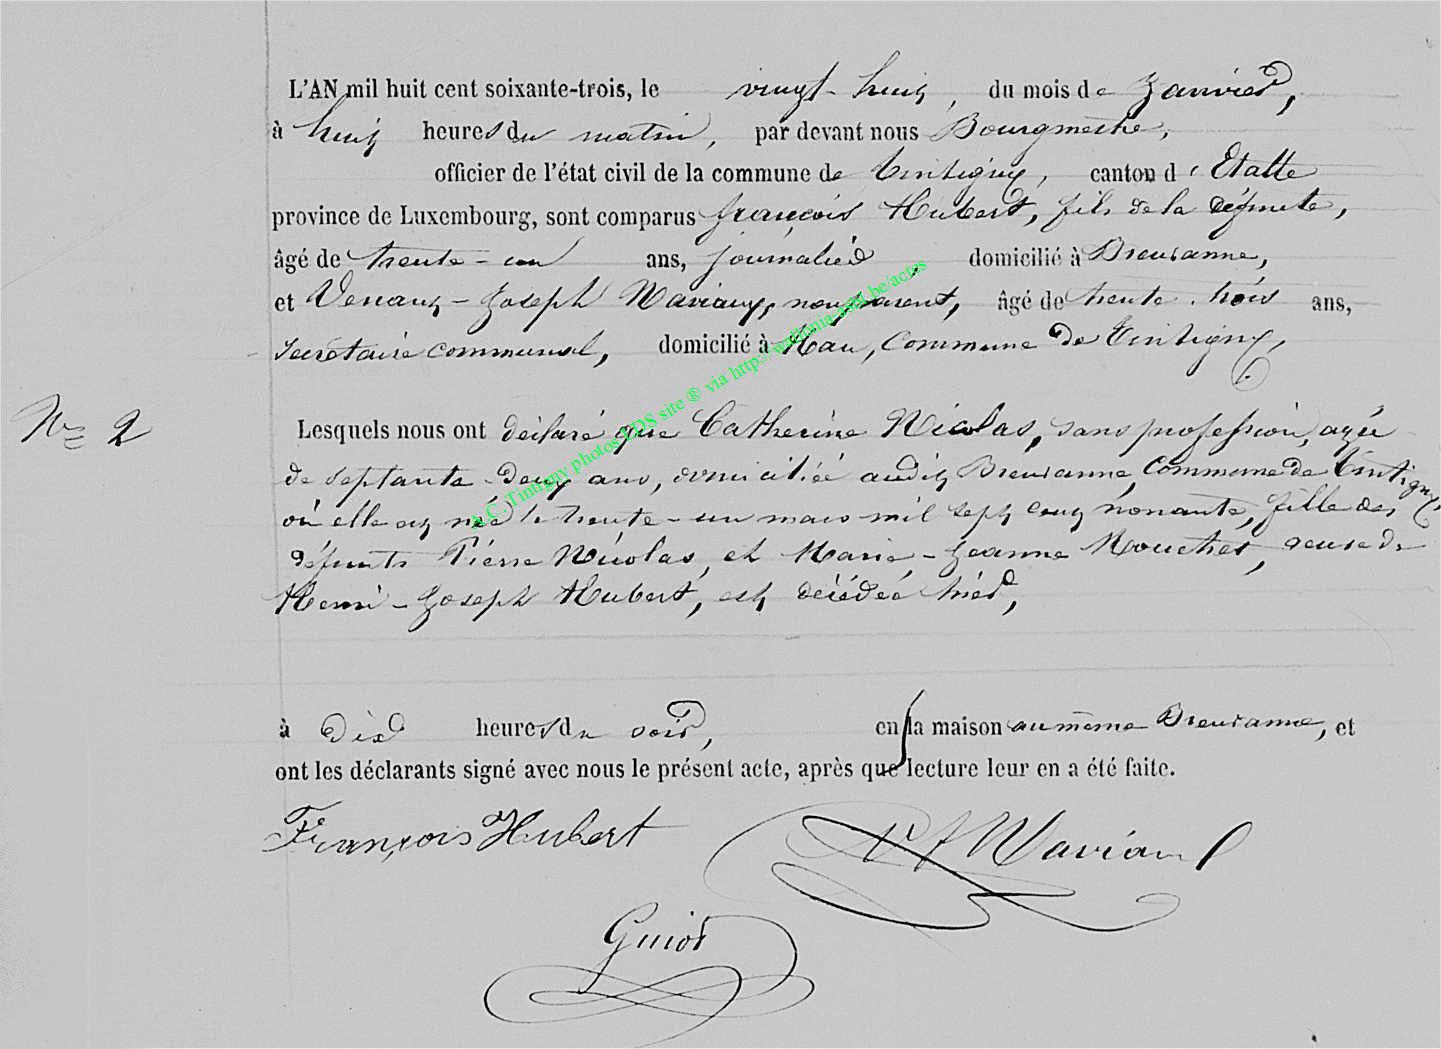 L'AN mil huit cent soixante-trois, le vingt-huit, du mois de Janvier,
à huit heures du matin, par devant nous Bourgmestre,
officier de l'état civil de la commune de Tintigny, canton d'Etalle
province de Luxembourg, sont comparus françois Hubert, fils de la défunte,
âgé de trente-un ans, journalier domicilié à Breuvanne,
et Venant-Joseph Naviaux, non parent, âgé de trente-trois ans,
secrétaire communal, domicilié à Han, Commune de Tintigny,
N° 2
Lesquels nous ont déclaré que Catherine Nicolas, sans profession, agée
de septante-deux ans, domiciliée audit Breuvanne, Commune de Tintigny,
où elle est née le trente-un mars mil sept cent nonante, fille des
défunts Pierre Nicolas, et Marie-Jeanne veuve de
Henri-Joseph Hubert, est décédée hier,
à dix heures du soir, en la maison au même Breuvanne, et
ont les déclarants signé avec nous le présent acte, après que lecture leur en a été faite.
François Hubert
VJ Naviaux
Guiot
A.C. Tintigny photos LDS site ® via http://wallonia-asbl.be/actes